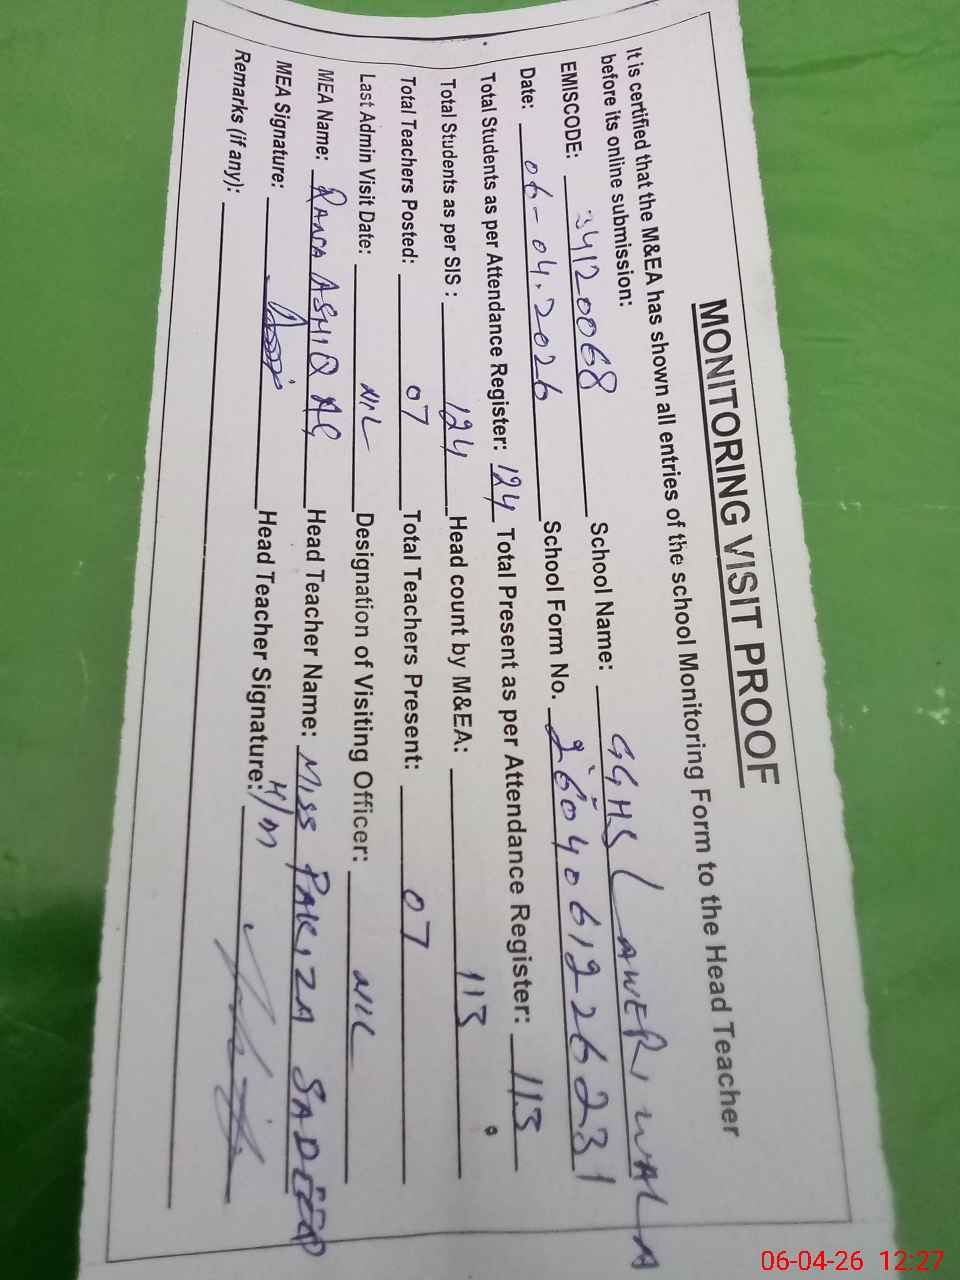 MONITORING VISIT PROOF
It is certified that the M&EA has shown all entries of the school Monitoring Form to the Head Teacher
before its online submission:
EMISCODE: 34120068 School Name: GGHS LAWERIWALA
Date: 06-04-2026 School Form No. 26040612262 31
Total Students as per Attendance Register: 124 Total Present as per Attendance Register: 113
Total Students as per SIS : 124 Head count by M&EA: 113
Total Teachers Posted: 07 Total Teachers Present: 07
Last Admin Visit Date: NIL Designation of Visiting Officer: NIL
MEA Name: RANA ASHIQ Head Teacher Name: MISS PAKIZA
MEA Signature: Head Teacher Signature: H/M
Remarks (if any):
06-04-26 12:27